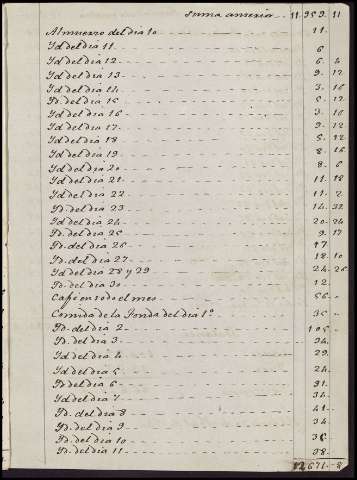 Suma anterior 11.959. 11
Almuerzo del dia 10 11.
Yd del dia 11. 6
Yd del dia 12 6. 4
Yd del dia 13 9. 17
Yd del dia 14 3. 16
Yd. del dia 15 5. 17
Yd del dia 16 3. 16
Yd del dia 17 9. 12
Yd del dia 18 5. 12
Yd del dia 19 8. 16
Yd del dia 20 8. 6
Yd del dia 21 11. 18
Yd del dia 22 11. 2
Yd. del dia 23 14. 32
Yd del dia 24 20. 24
Yd. del dia 25 9. 17
Yd. del dia 26 17
Yd. del dia 27 18. 10
Yd del dia 28 y 29 24. 26
Yd. del dia 30 12.
Café en todo el mes 56.
Comida de la Fonda del dia 1º 35
Yd. del dia 2 105.
Yd. del dia 3 34.
Yd del dia 4 29.
Yd del dia 5 24.
Yd del dia 6 31.
Yd del dia 7 34.
Yd. del dia 8 41.
Yd. del dia 9 34
Yd. del dia 10 35
Yd. del dia 11 38.
12.671. 8